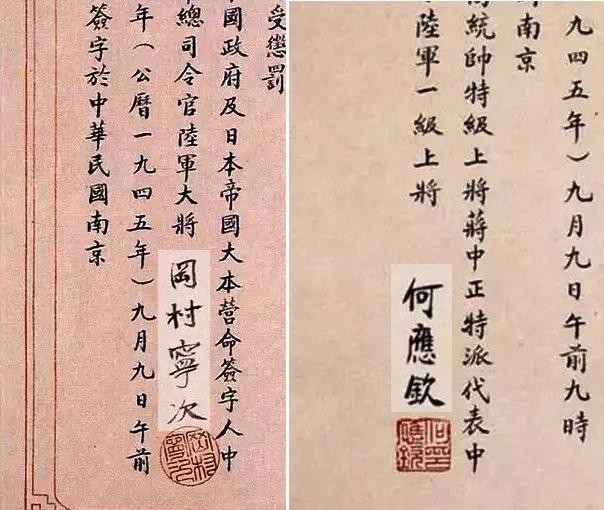 受懲罰
國政府及日本帝國大本營命簽字人中
總司令官陸軍大將 岡村寧次
年（公曆一九四五年）九月九日午前
簽字於中華民國南京
九四五年）九月九日午前九時
南京
統帥特級上將蔣中正特派代表中
陸軍一級上將 何應欽